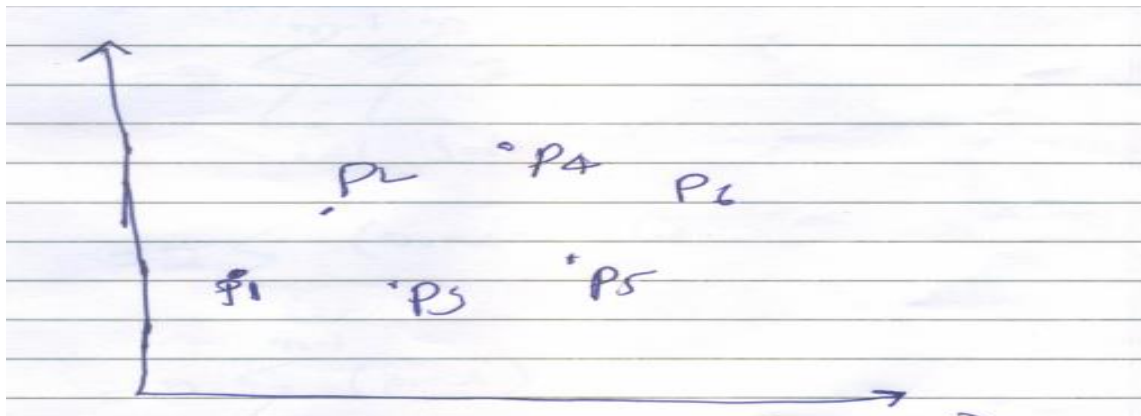 P4
P2
P6
P1
P3
P5